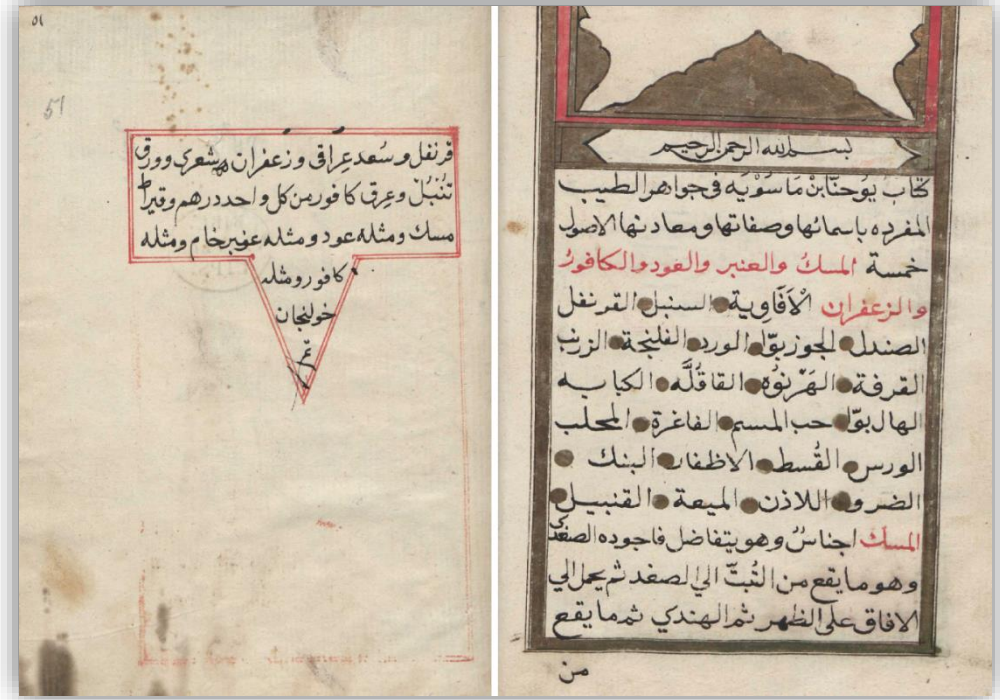 بسم الله الرحمن الرحيم
كتاب يوحنا بن مَاسَوَيْه في جواهر الطيب
المفرده باسمائها وصفاتها ومعادنها الاصول
خمسة المسك والعنبر والعود والكافور
والزعفران الْاَفَاوِية السنبل القرنفل
الصندل الجوزبوّا الورد الفلنجة الزرنب
القرفة الهَرْنوُه القاقُلَّه الكبابه
الهال بوّا حب الميسم الفاغرة المحلب
الورس القُسط الاظفار البنك
الضرو اللاذن الميعة القنبيل
المسك اجناسٌ وهو يتفاضل فاجوده الصغدي
وهو ما يقع من التُبتّ الي الصغد ثم يحمل الي
الافاق على الظهر ثم الهندي ثم ما يقع
من
٥١
51
قرنفل وسُعد عِراقي وزعفران شعري وورق
تُنْبُل وعِرق كافور من كل واحد درهم وقيراط
مسك ومثله عود ومثله عنبر خام ومثله
كافور ومثله
خولنجان
تم